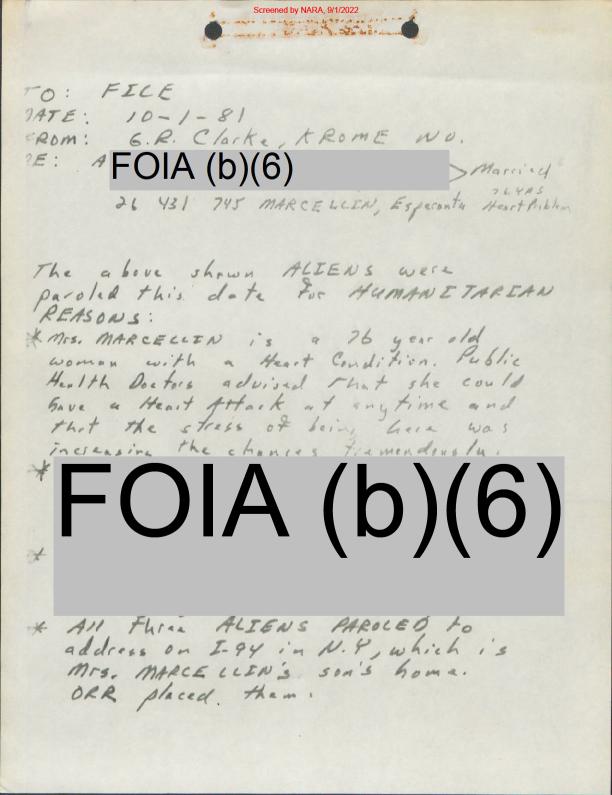 Screened by NARA, 9/1/2022
TO: FILE
DATE: 10-1-81
FROM: G.R. Clarke, KROME NO.
RE: A FOIA (b)(6) > Married
76 YRS
26 431 745 MARCELLIN, Esperanta Heart Problem
The above shown ALIENS were
paroled this date for HUMANITARIAN
REASONS:
* Mrs. MARCELLIN is a 76 year old
woman with a Heart Condition. Public
Health Doctors advised that she could
have a Heart Attack at anytime and
that the stress of being here was
increasing the chances tremendously.
*
FOIA (b)(6)
*
* All three ALIENS PAROLED to
address on I-94 in N.Y, which is
Mrs. MARCELLIN's son's home.
ORR placed them.